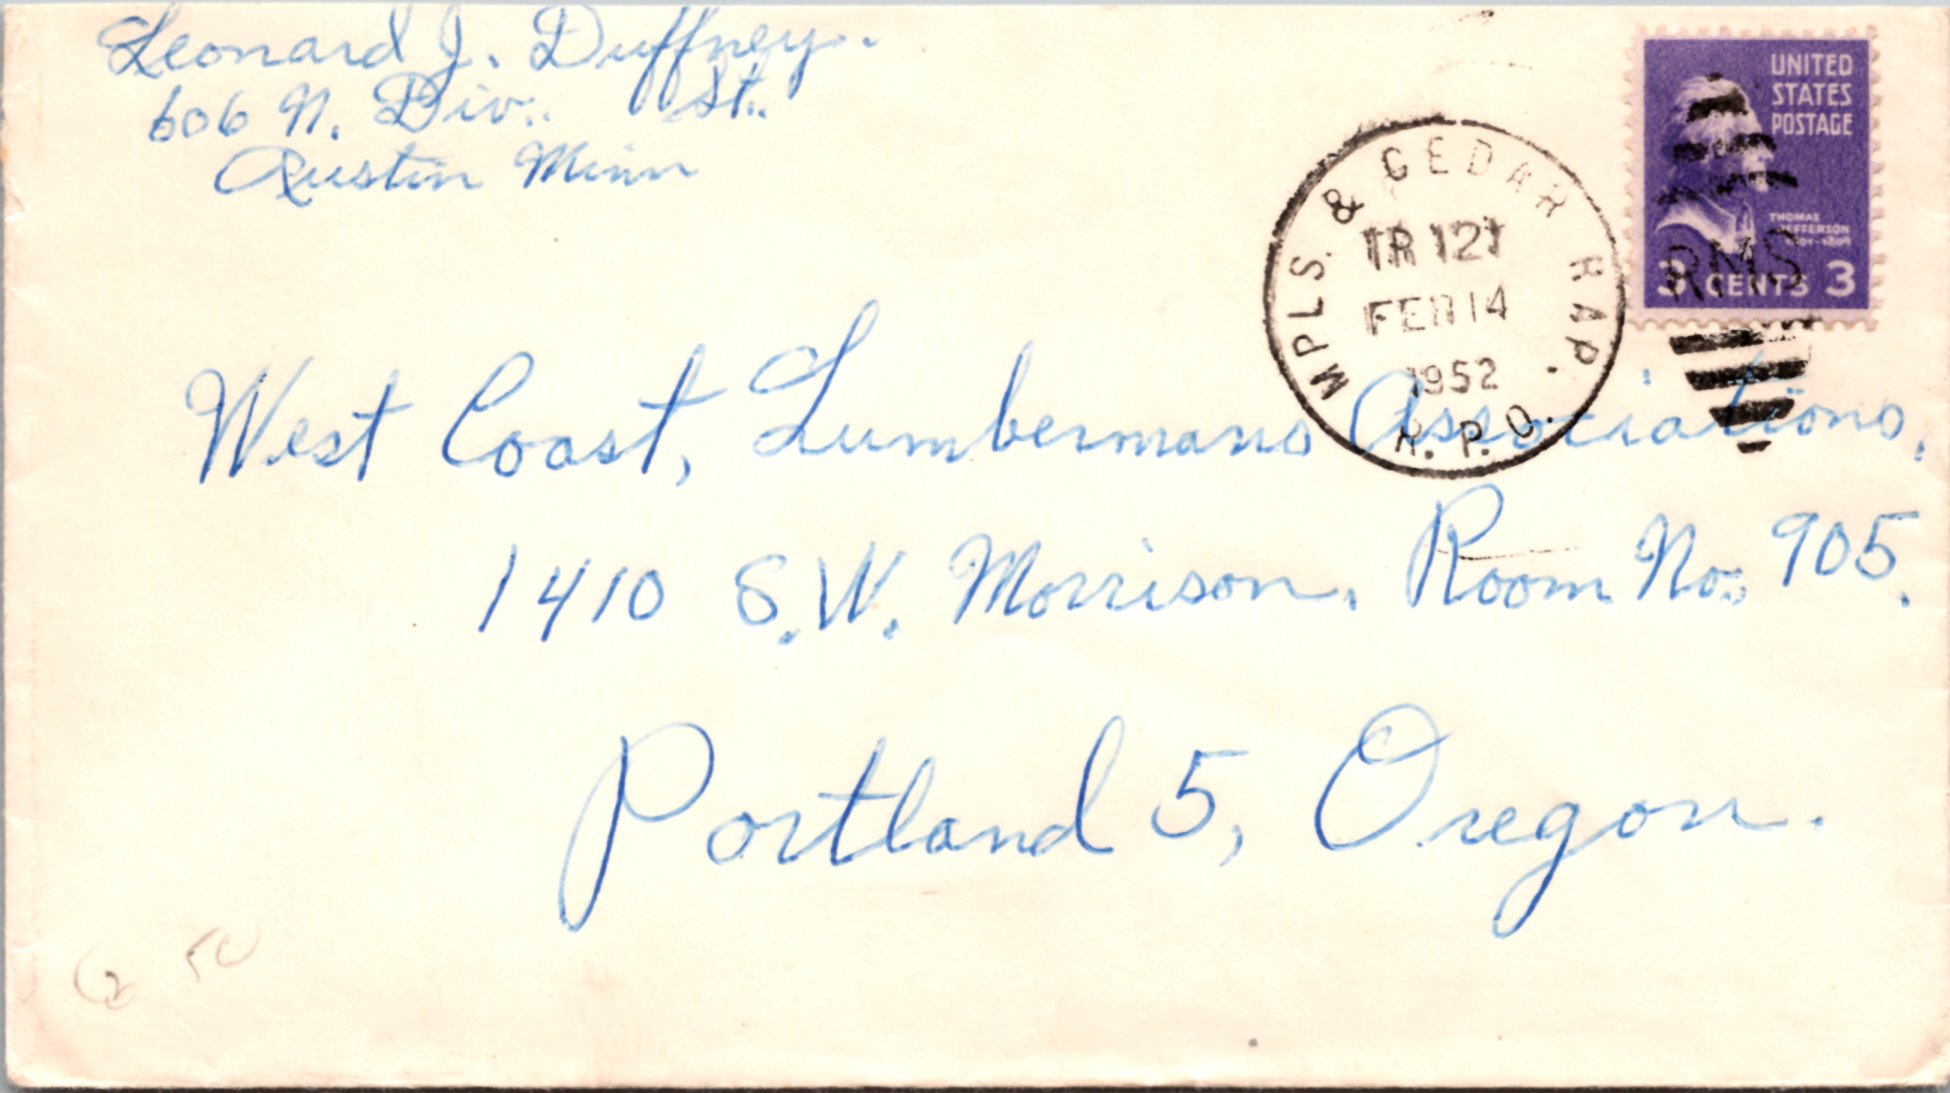 Leonard J. Duffney.
606 N. Div. St.
Austin Minn
UNITED
STATES
POSTAGE
THOMAS
JEFFERSON
1801-1809
3 CENTS 3
RMS
MPLS. & CEDAR RAP.
TR 121
FEB 14
1952
R.P.O.
West Coast, Lumbermans Associations,
1410 S.W. Morrison. Room No. 905.
Portland 5, Oregon.